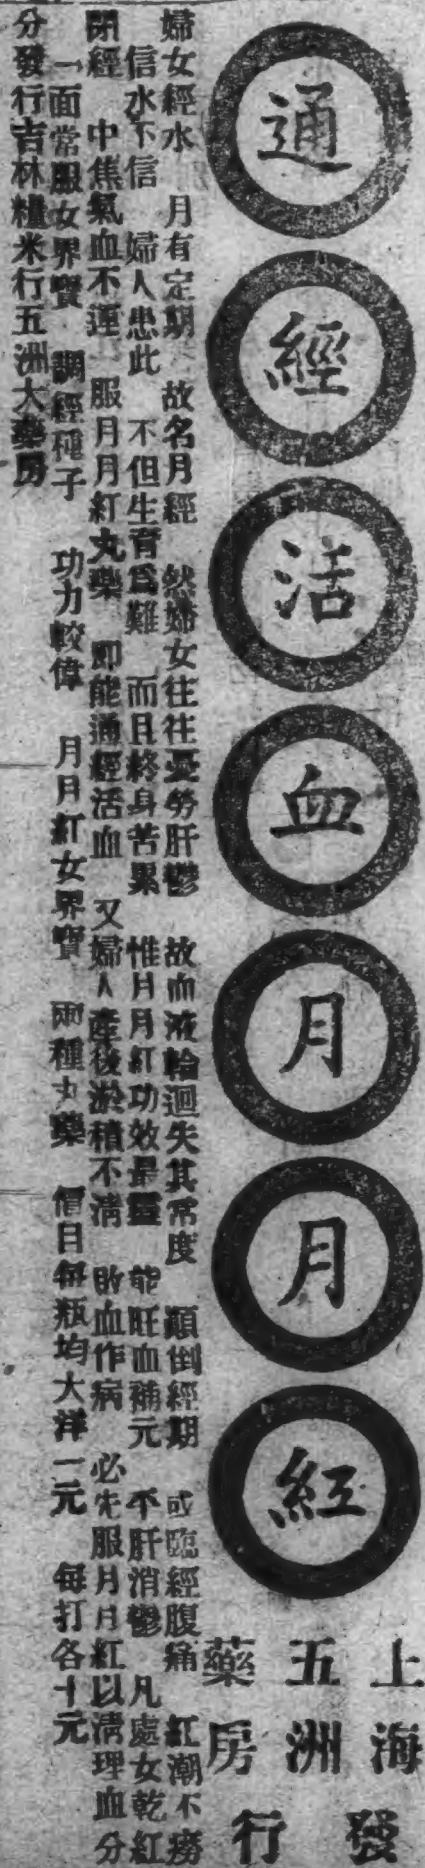 通經活血月月紅
上海
五洲
藥房
發行
婦女經水　月有定期　故名月經　然婦女往往憂勞肝鬱　故血液輪迴失其常度　顚倒經期　或臨經腹痛　紅潮不癆
信水不信　婦人患此　不但生育爲難　而且終身苦累　惟月月紅功效最靈　能旺血補元　平肝消鬱　凡處女乾紅
閉經　中焦氣血不運　服月月紅丸藥　即能通經活血　又婦人產後淤積不清　敗血作病　必先服月月紅以清理血分
一面常服女界寶　調經種子　功力較偉　月月紅女界寶　兩種丸藥　價目每瓶均大洋一元　每打各十元
分發行吉林糧米行五洲大藥房